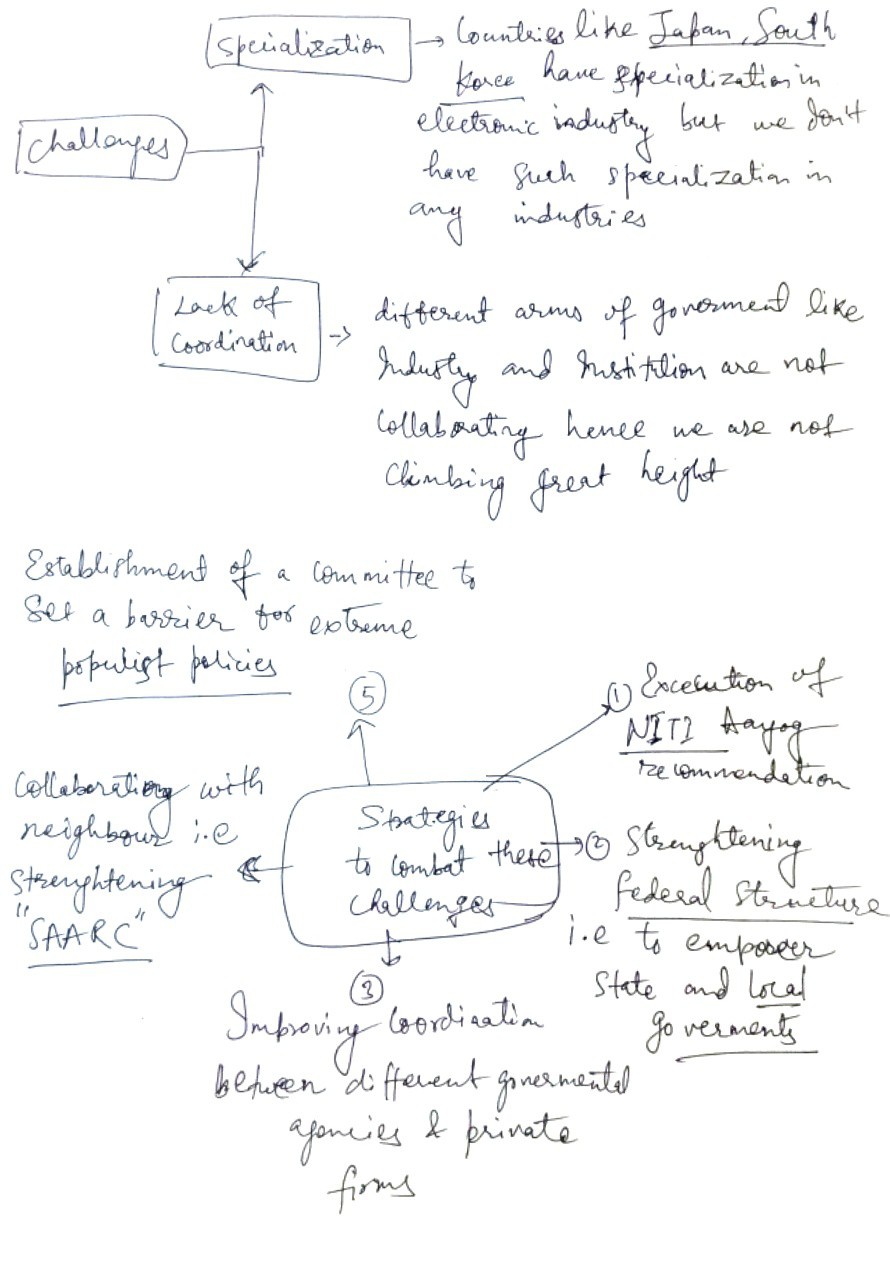 Specialization
→ Countries like Japan, South
Koree have specialization in
electronic industry but we don't
have such specialization in
any industries
Challenges
Lack of
Coordination
→ different arms of goverment like
Industry and Institution are not
Collaborating hence we are not
Climbing great height
Establishment of a committee to
Set a barrier for extreme
populist policies
⑤
① Excecution of
NITI Aayog
recommendation
Collaborationg with
neighbour i.e
Strenghtening
"SAARC"
Strategies
to combat these
Challenges
② Strenghtening
federal Structure
i.e to empower
State and local
goverments
③
Improving Coordination
between different govermental
agencies & private
firms